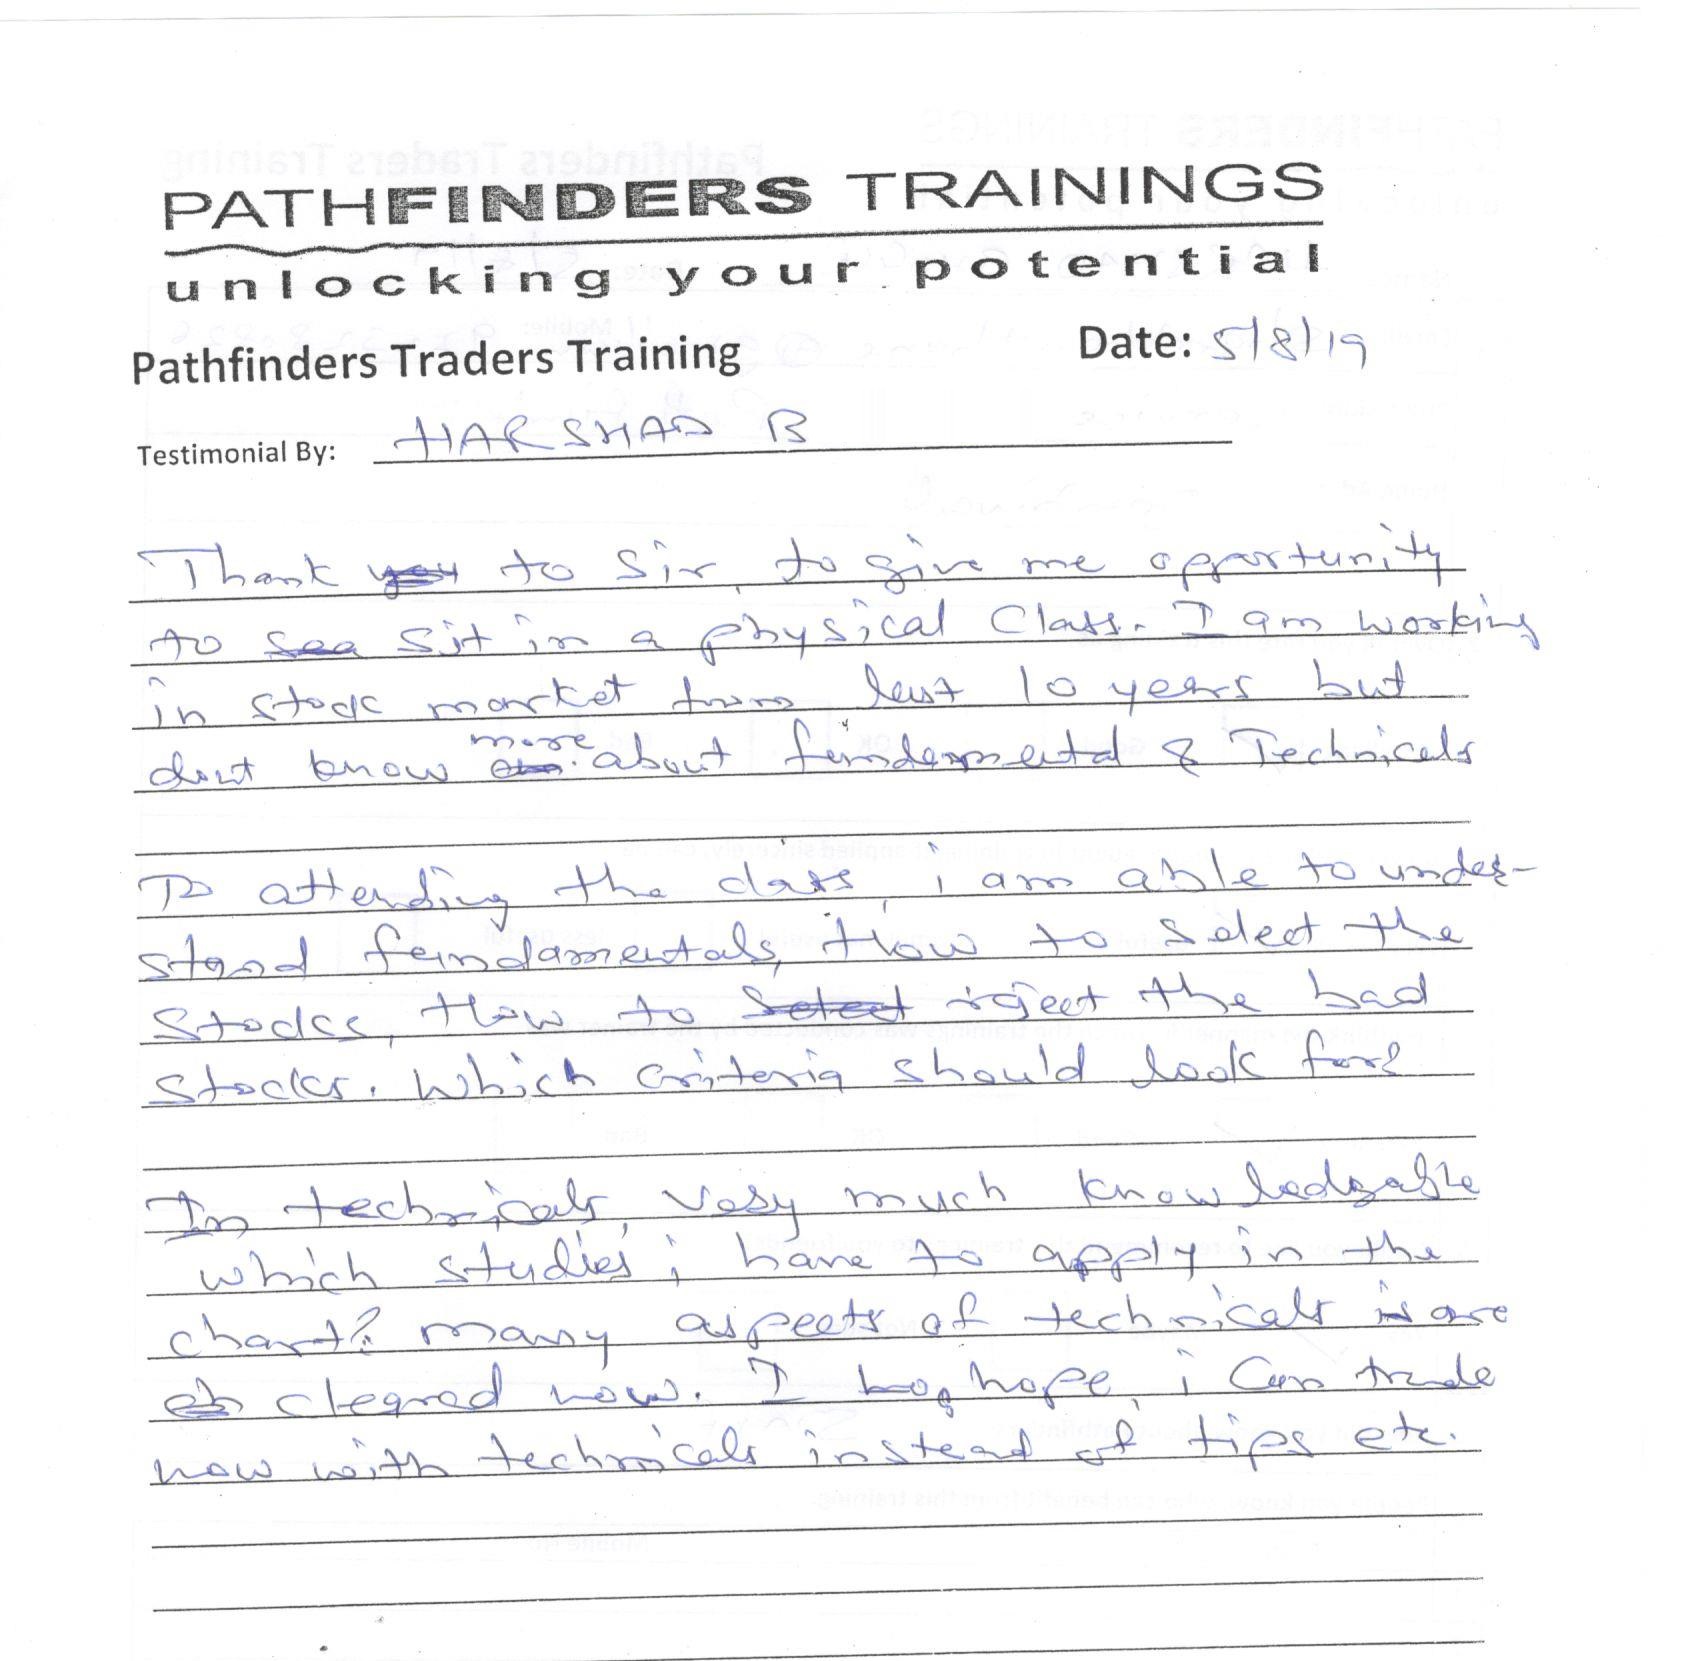 PATHFINDERS TRAININGS
unlocking your potential
Pathfinders Traders Training Date: 5/8/19
Testimonial By: HARSHAD B
Thank you to Sir, to give me opportunity
to sea sit in a physical Class. I am working
in stock market from last 10 years but
dont know more about fundamental & Technicals
To attending the class, i am able to under-
stand fundamentals, How to Select the
Stocks, How to Select reject the bad
stocks. Which criteria should look for?
In technicals, very much knowledgable
which studies i have to apply in the
chart? many aspects of technicals is are
cleared now. I hope, i Can trade
now with technicals instead of tips etc.